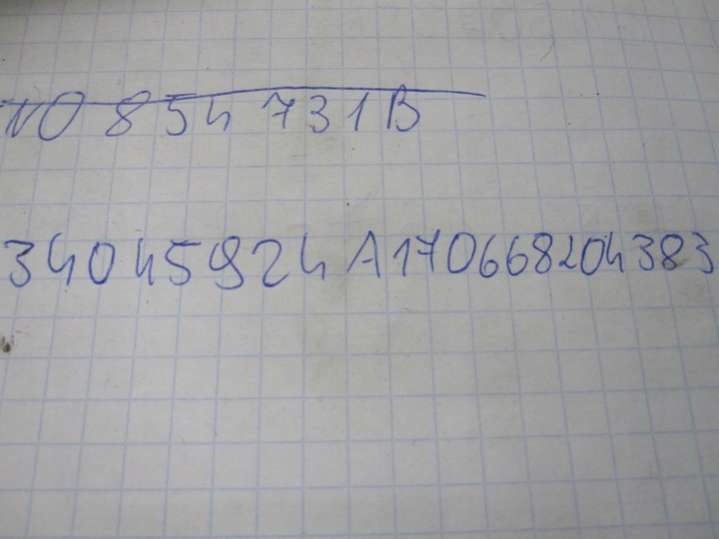 NO 854 731B
34045924A170668204383